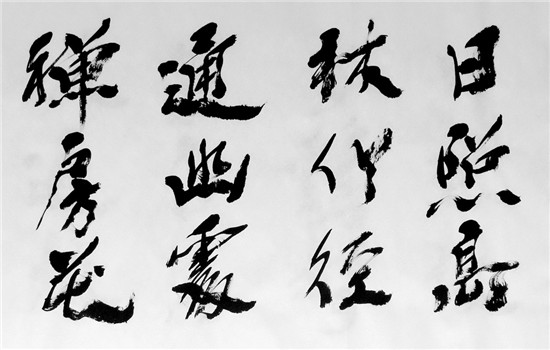 日照高
林竹径
通幽處
禅房花